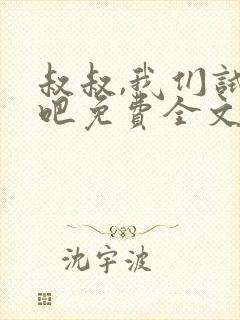 叔叔,我们试
吧免费全文
沈宇波